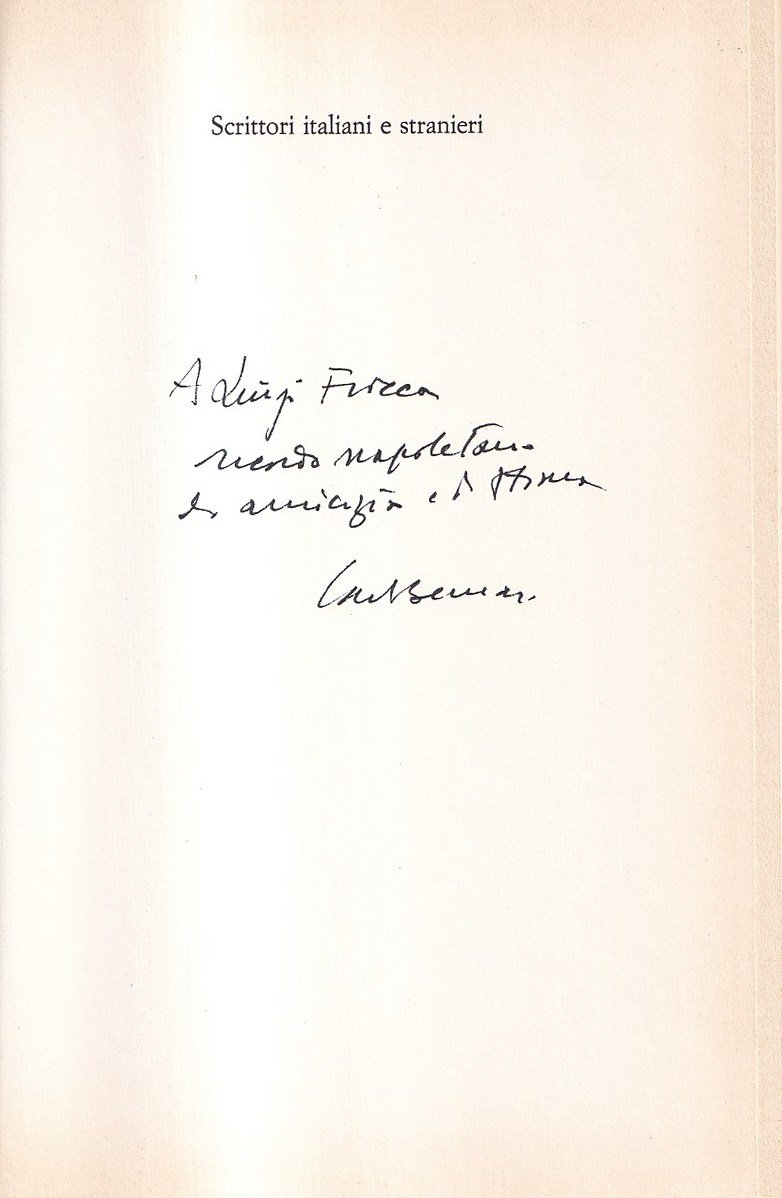 Scrittori italiani e stranieri
A Luigi
ricordo napoletano
di amicizia e di stima